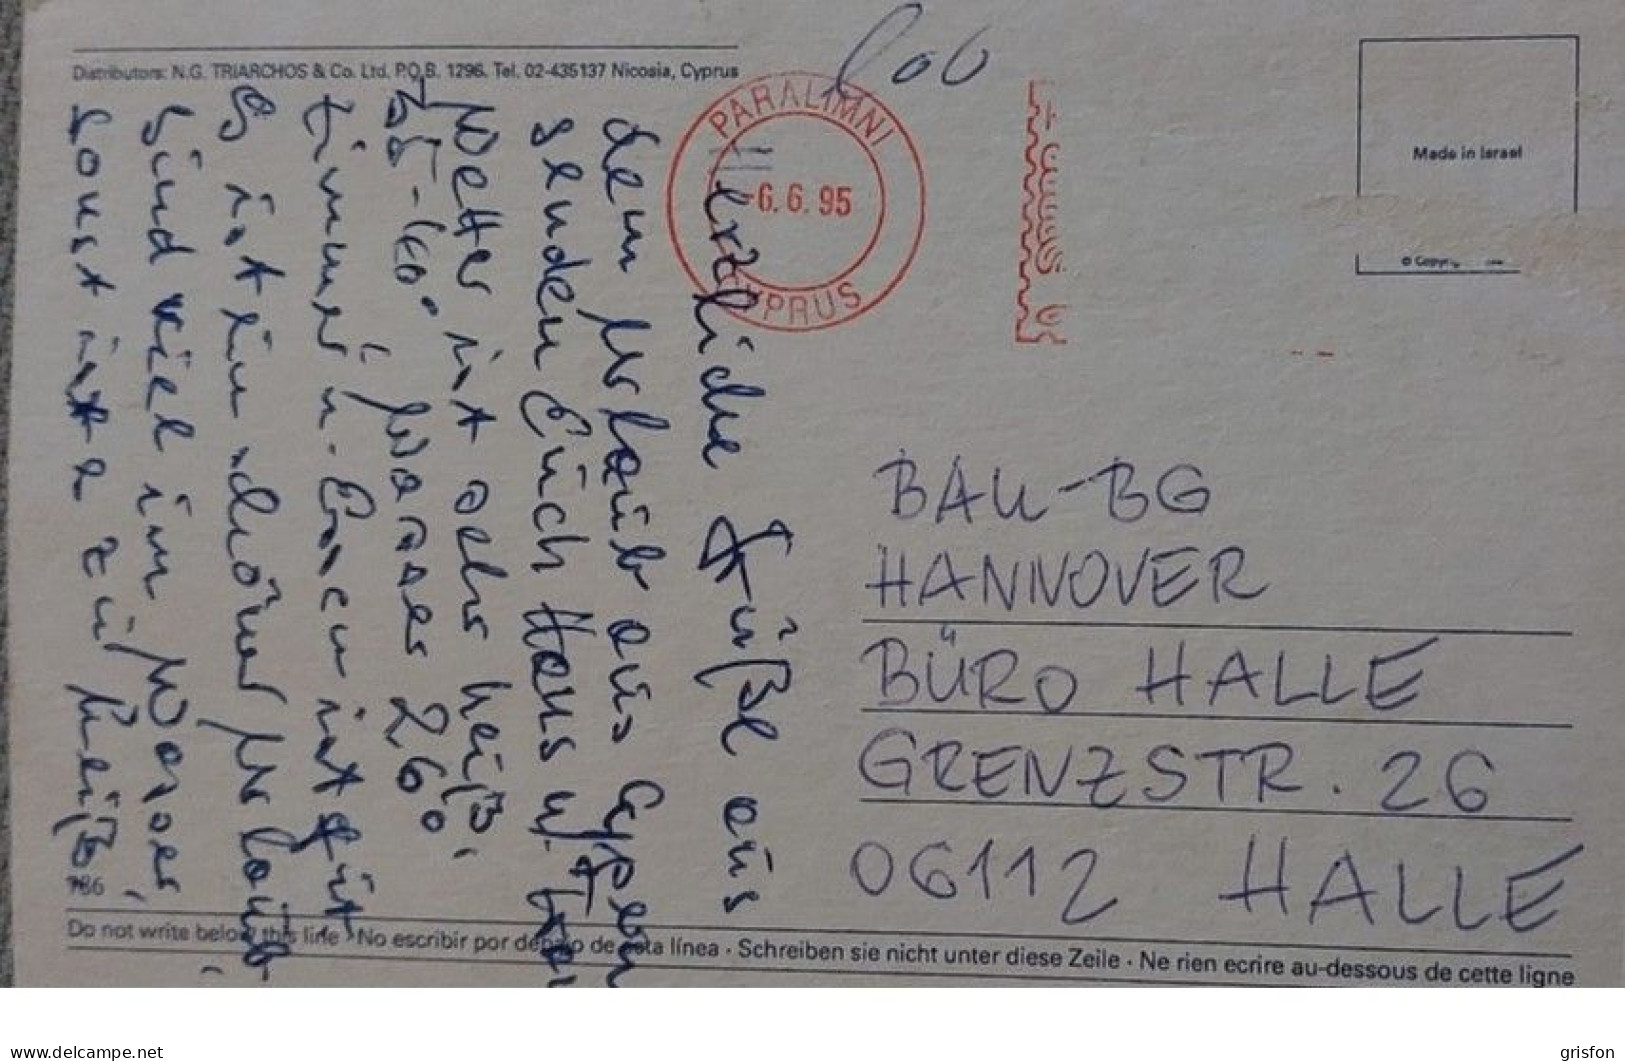 Distributors: N.G. TRIARCHOS & Co. Ltd. P.O.B. 1296. Tel. 02-435137 Nicosia, Cyprus
PARALIMNI
-6.6.95
CYPRUS
Made in Israel
© Copyr
Herzliche Grüße aus
dem Urlaub aus Cypern
senden Euch Haus u.
Wetter ist sehr heiß,
35-40° Wasser 26°
Zimmer u. Essen ist gut
Es ist ein schöner Urlaub
sind viel im Wasser,
sonst ist zu heiß,
BAU-BG
HANNOVER
BÜRO HALLE
GRENZSTR. 26
06112 HALLE
786
Do not write below this line · No escribir por debajo de esta línea · Schreiben sie nicht unter diese Zeile · Ne rien ecrire au-dessous de cette ligne
www.delcampe.net
grisfon